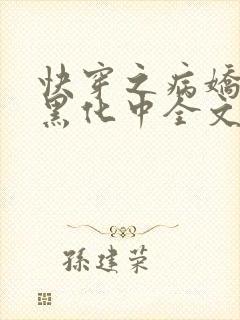 快穿之病嬌
黑化中全文
孫建荣